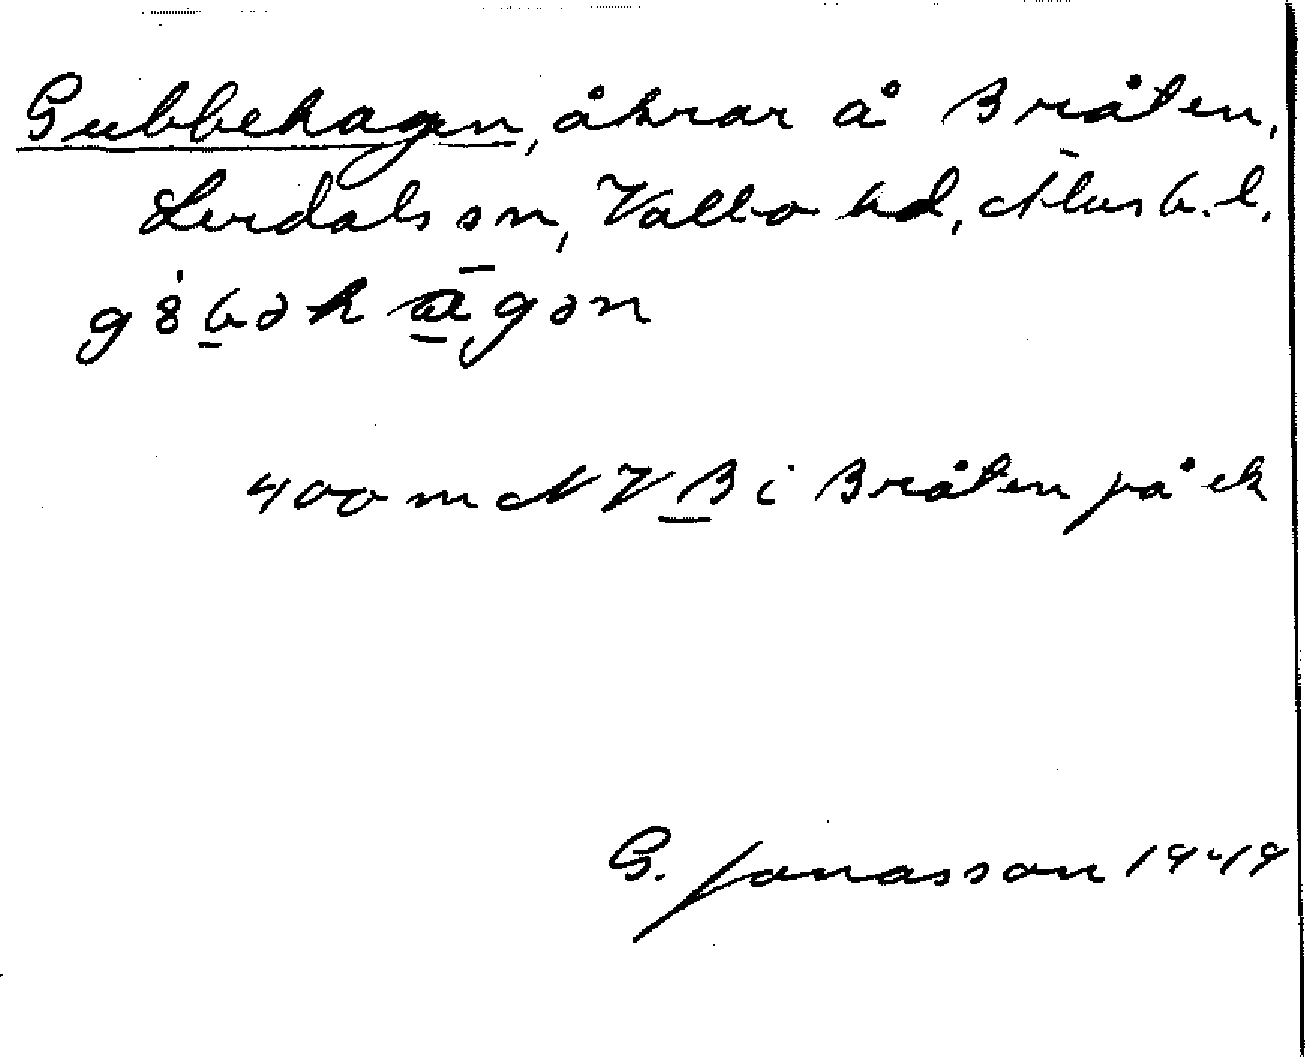 Gubbehagen, åkrar å Bråten,
Lerdals sn, Valbo hd, Älvsb. l.
g8bəhāgən
400 m NV B i Bråten på ek
G. Jonasson 1949